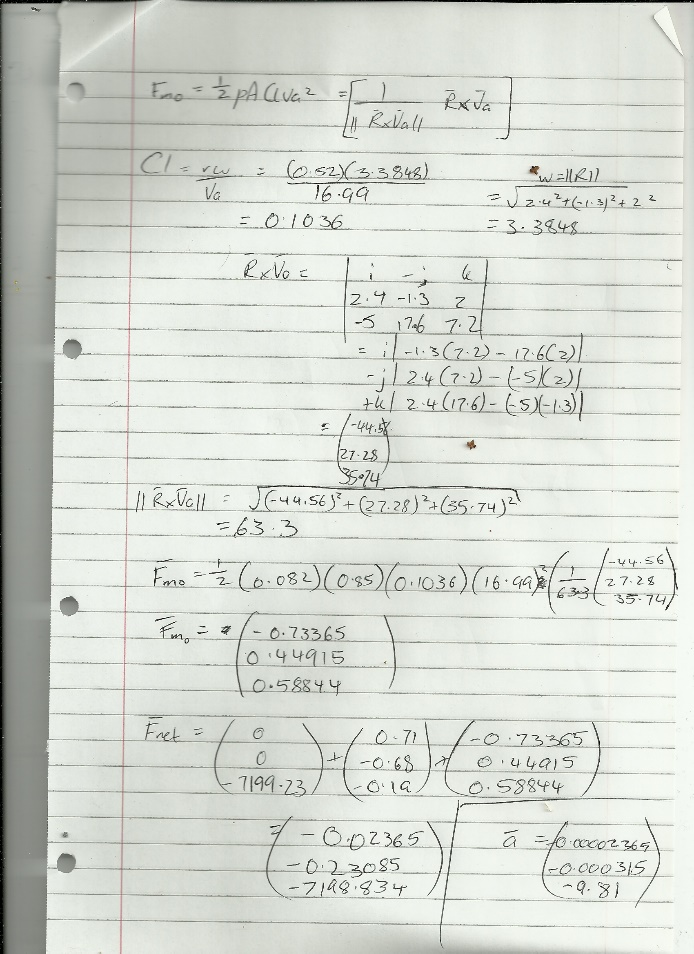 Fmo = 1/2 ρA Cl Va² = [ 1/||R̄xV̄a|| R̄xV̄a ]
Cl = rw/Va = (0.52)(3.3848)/16.99
= 0.1036
*w = ||R||
= √(2.4² + (-1.3)² + 2²)
= 3.3848
R̄xV̄a = | i -j k |
| 2.4 -1.3 2 |
| -5 17.6 7.2 |
= i| -1.3(7.2) - 17.6(2) |
-j| 2.4(7.2) - (-5)(2) |
+k| 2.4(17.6) - (-5)(-1.3) |
= ( -44.56
27.28
35.74 )
||R̄xV̄a|| = √((-44.56)² + (27.28)² + (35.74)²)
= 63.3
F̄mo = 1/2 (0.082)(0.85)(0.1036)(16.99)² ( 1/63.3 ( -44.56
27.28
35.74 )
F̄mo = ( -0.73365
0.44915
0.58844 )
F̄net = ( 0 ) + ( 0.71 ) + ( -0.73365 )
( 0 ) ( -0.68 ) ( 0.44915 )
( -7199.23 ) ( -0.19 ) ( 0.58844 )
= ( -0.02365
-0.23085
-7198.834 )
ā = ( -0.00002365
-0.000315
-9.81 )